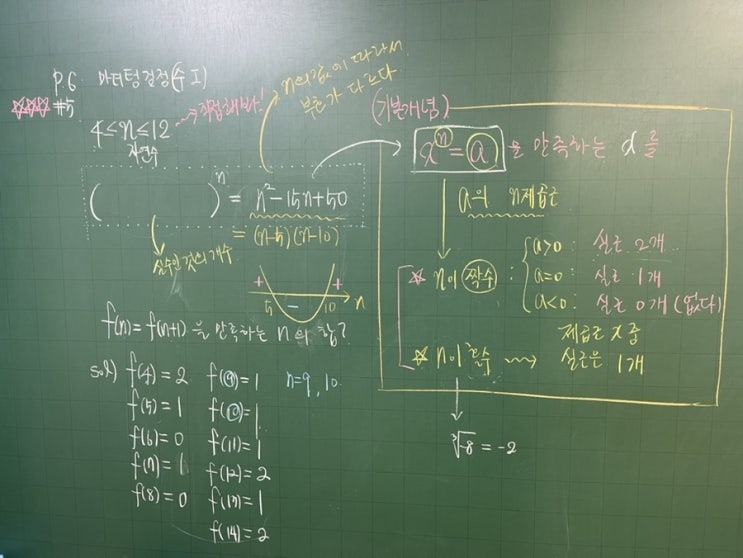 p.6 마더텅 검정(수Ⅰ)
☆☆☆ #5
4≤n≤12 → 직접해봐!
자연수
n의 값에 따라서
부호가 다르다
( )ⁿ = n²-15n+50
= (n-5)(n-10)
실수인 것의 개수
+ 5 - 10 + n
f(n)=f(n+1)을 만족하는 n의 합?
sol) f(4)=2
f(5)=1
f(6)=0
f(7)=1
f(8)=0
f(9)=1
f(10)=1
f(11)=1
f(12)=2
f(13)=1
f(14)=2
n=9, 10
(기본개념)
xⁿ=a을 만족하는 x를
a의 n제곱근
☆ n이 짝수 :
a>0 : 실근 2개
a=0 : 실근 1개
a<0 : 실근 0개(없다)
☆ n이 홀수 → 제곱근 x 중
실근은 1개
³√-8 = -2